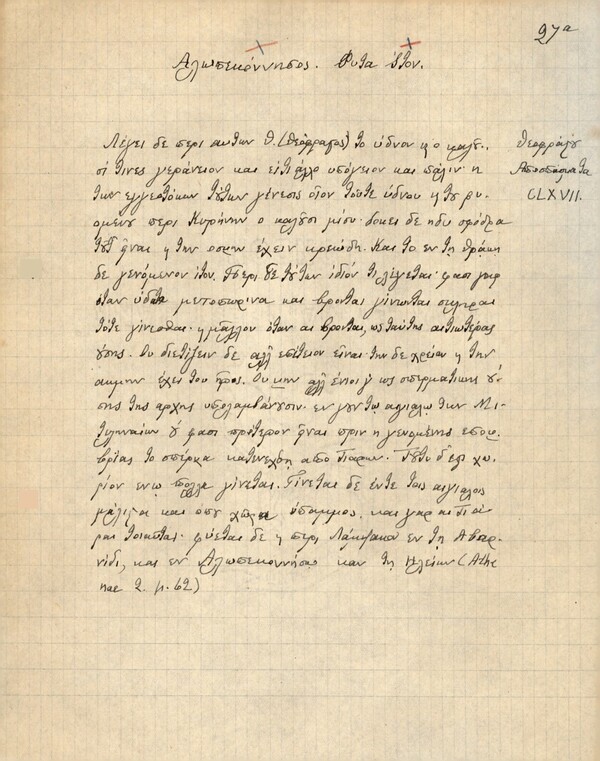 27α
Αλωπεκόννησος. Φυτα ίτον.
Λέγει δε περι αυτων Θ. (Θεόφραστος) το ύδνον
Θεοφράστου
σί τινες γεράνειον και ει τι άλλο υπόγειον και πάλιν· η
Αποσπασματα
των εγγεοτόκων τούτων γένεσις
CLXVII.
ομενου περι Κυρήνην ο καλουσι μίσυ. δοκει δε ηδυ σφόδρα
τουτ ειναι η την οσμην έχειν κρεώδη. Και το εν τη Θράκη
δε γενόμενον ίτον. Περι δε τούτων ίδιόν τι λέγεται· φασι γαρ
όταν ύδατα μετοπωρινα και βρονται γίνωνται σκληραι
τότε γίνεσθαι. η μαλλον όταν αι βρονται, ως ταύτης αιτιωτέρας
ούσης. Ου διετίζειν δε αλλ επέτειον ειναι· την δε χρείαν η την
ακμην έχει του ηρος. Ου μην αλλ ένιοι γ ως σπερματικης ού-
σης της αρχης υπολαμβάνουσιν. εν γουν τω αιγιαλω των Μι-
τυληναίων ού φασι πρότερον ειναι πριν η γενομένης επομ-
βρίας το σπέρμα κατενεχθη απο Τιαρων. Τουτο δ εστι χω-
ρίον εν ω πολλα γίνεται. Γίνεται δε έν τε τοις αιγιαλοις
μάλιστα και οπου χωρα ύπαμμος, και γαρ αι Τιά-
ραι τοιαυται· φύεται δε η περι Λάμψακον εν τη Αβαρ-
νίδι, και εν Αλωπεκοννήσω καν τη Ηλείων (Athe
nae 2. p. 62)